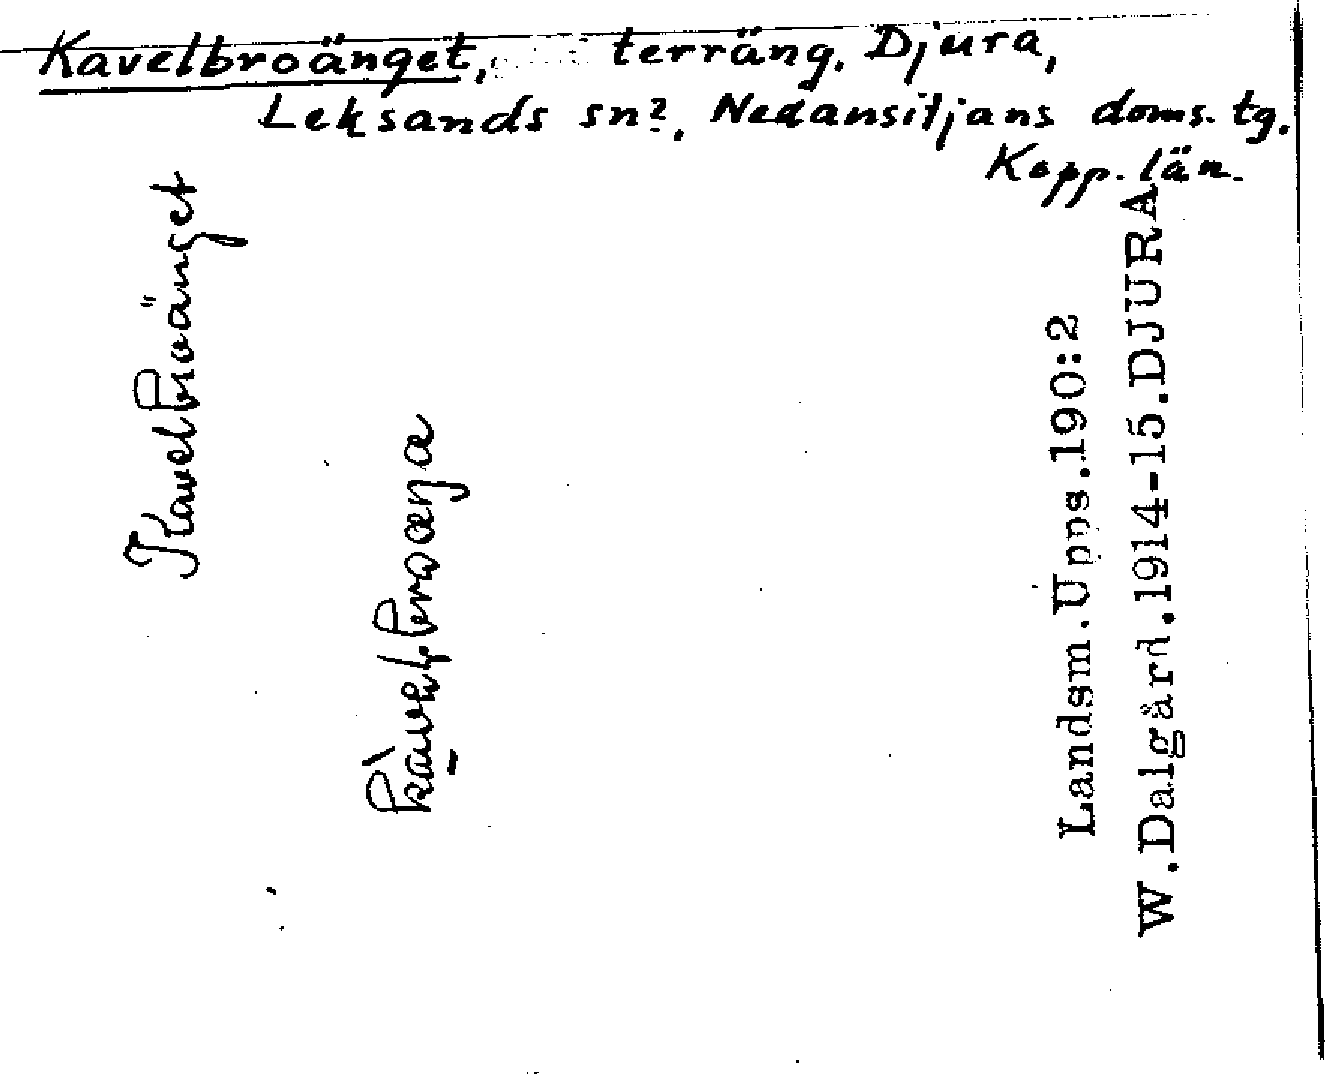 Kavelbroänget, terräng. Djura,
Leksands sn?, Nedansiljans doms. tg.
Kopp. län.
Kavelbroänget
Landsm.Upps.190:2
W.Dalgård.1914-15.DJURA